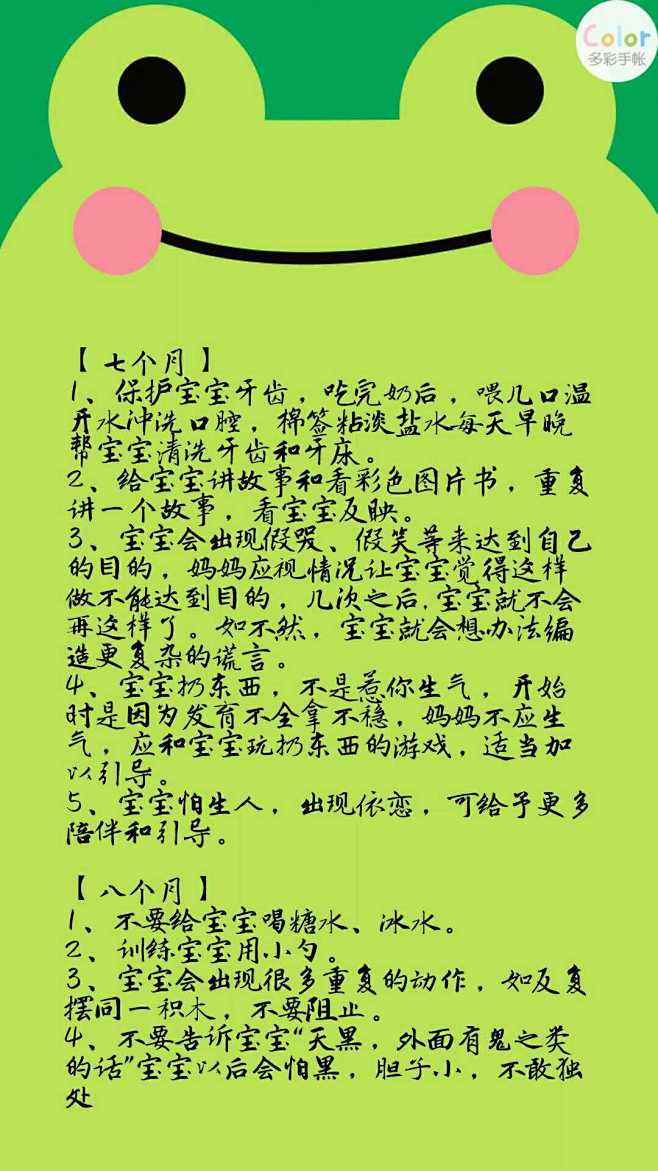 Color
多彩手帐
【七个月】
1、保护宝宝牙齿，吃完奶后，喂几口温
开水冲洗口腔，棉签粘淡盐水每天早晚
帮宝宝清洗牙齿和牙床。
2、给宝宝讲故事和看彩色图片书，重复
讲一个故事，看宝宝反映。
3、宝宝会出现假哭、假笑等来达到自己
的目的，妈妈应视情况让宝宝觉得这样
做不能达到目的，几次之后，宝宝就不会
再这样了。如不然，宝宝就会想办法编
造更复杂的谎言。
4、宝宝扔东西，不是惹你生气，开始
时是因为发育不全拿不稳，妈妈不应生
气，应和宝宝玩扔东西的游戏，适当加
以引导。
5、宝宝怕生人，出现依恋，可给予更多
陪伴和引导。
【八个月】
1、不要给宝宝喝糖水、冰水。
2、训练宝宝用小勺。
3、宝宝会出现很多重复的动作，如反复
摆同一积木，不要阻止。
4、不要告诉宝宝“天黑，外面有鬼之类
的话”宝宝以后会怕黑，胆子小，不敢独
处